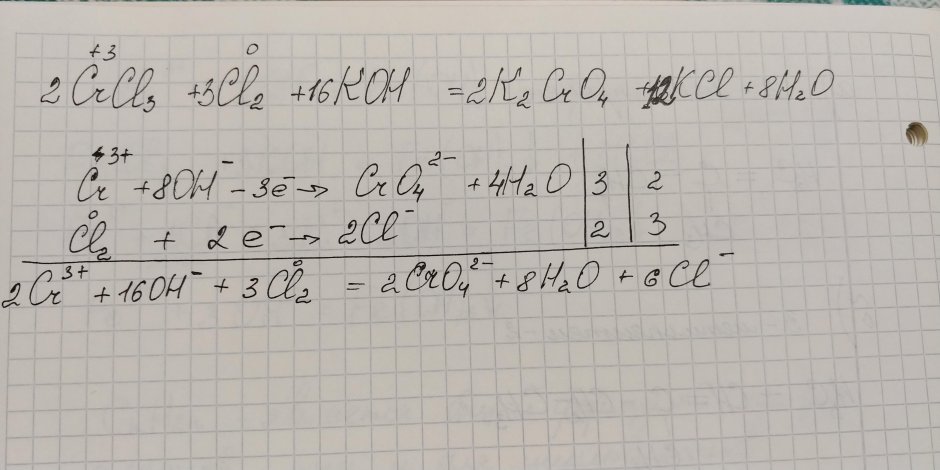 +3 0
2CrCl₃ +3Cl₂ +16KOH =2K₂CrO₄ +12KCl +8H₂O
Cr³⁺ +8OH⁻ -3e⁻ → CrO₄²⁻ +4H₂O | 3 | 2
Cl₂⁰ + 2e⁻ → 2Cl⁻ | 2 | 3
2Cr³⁺ +16OH⁻ + 3Cl₂⁰ = 2CrO₄²⁻ +8H₂O + 6Cl⁻